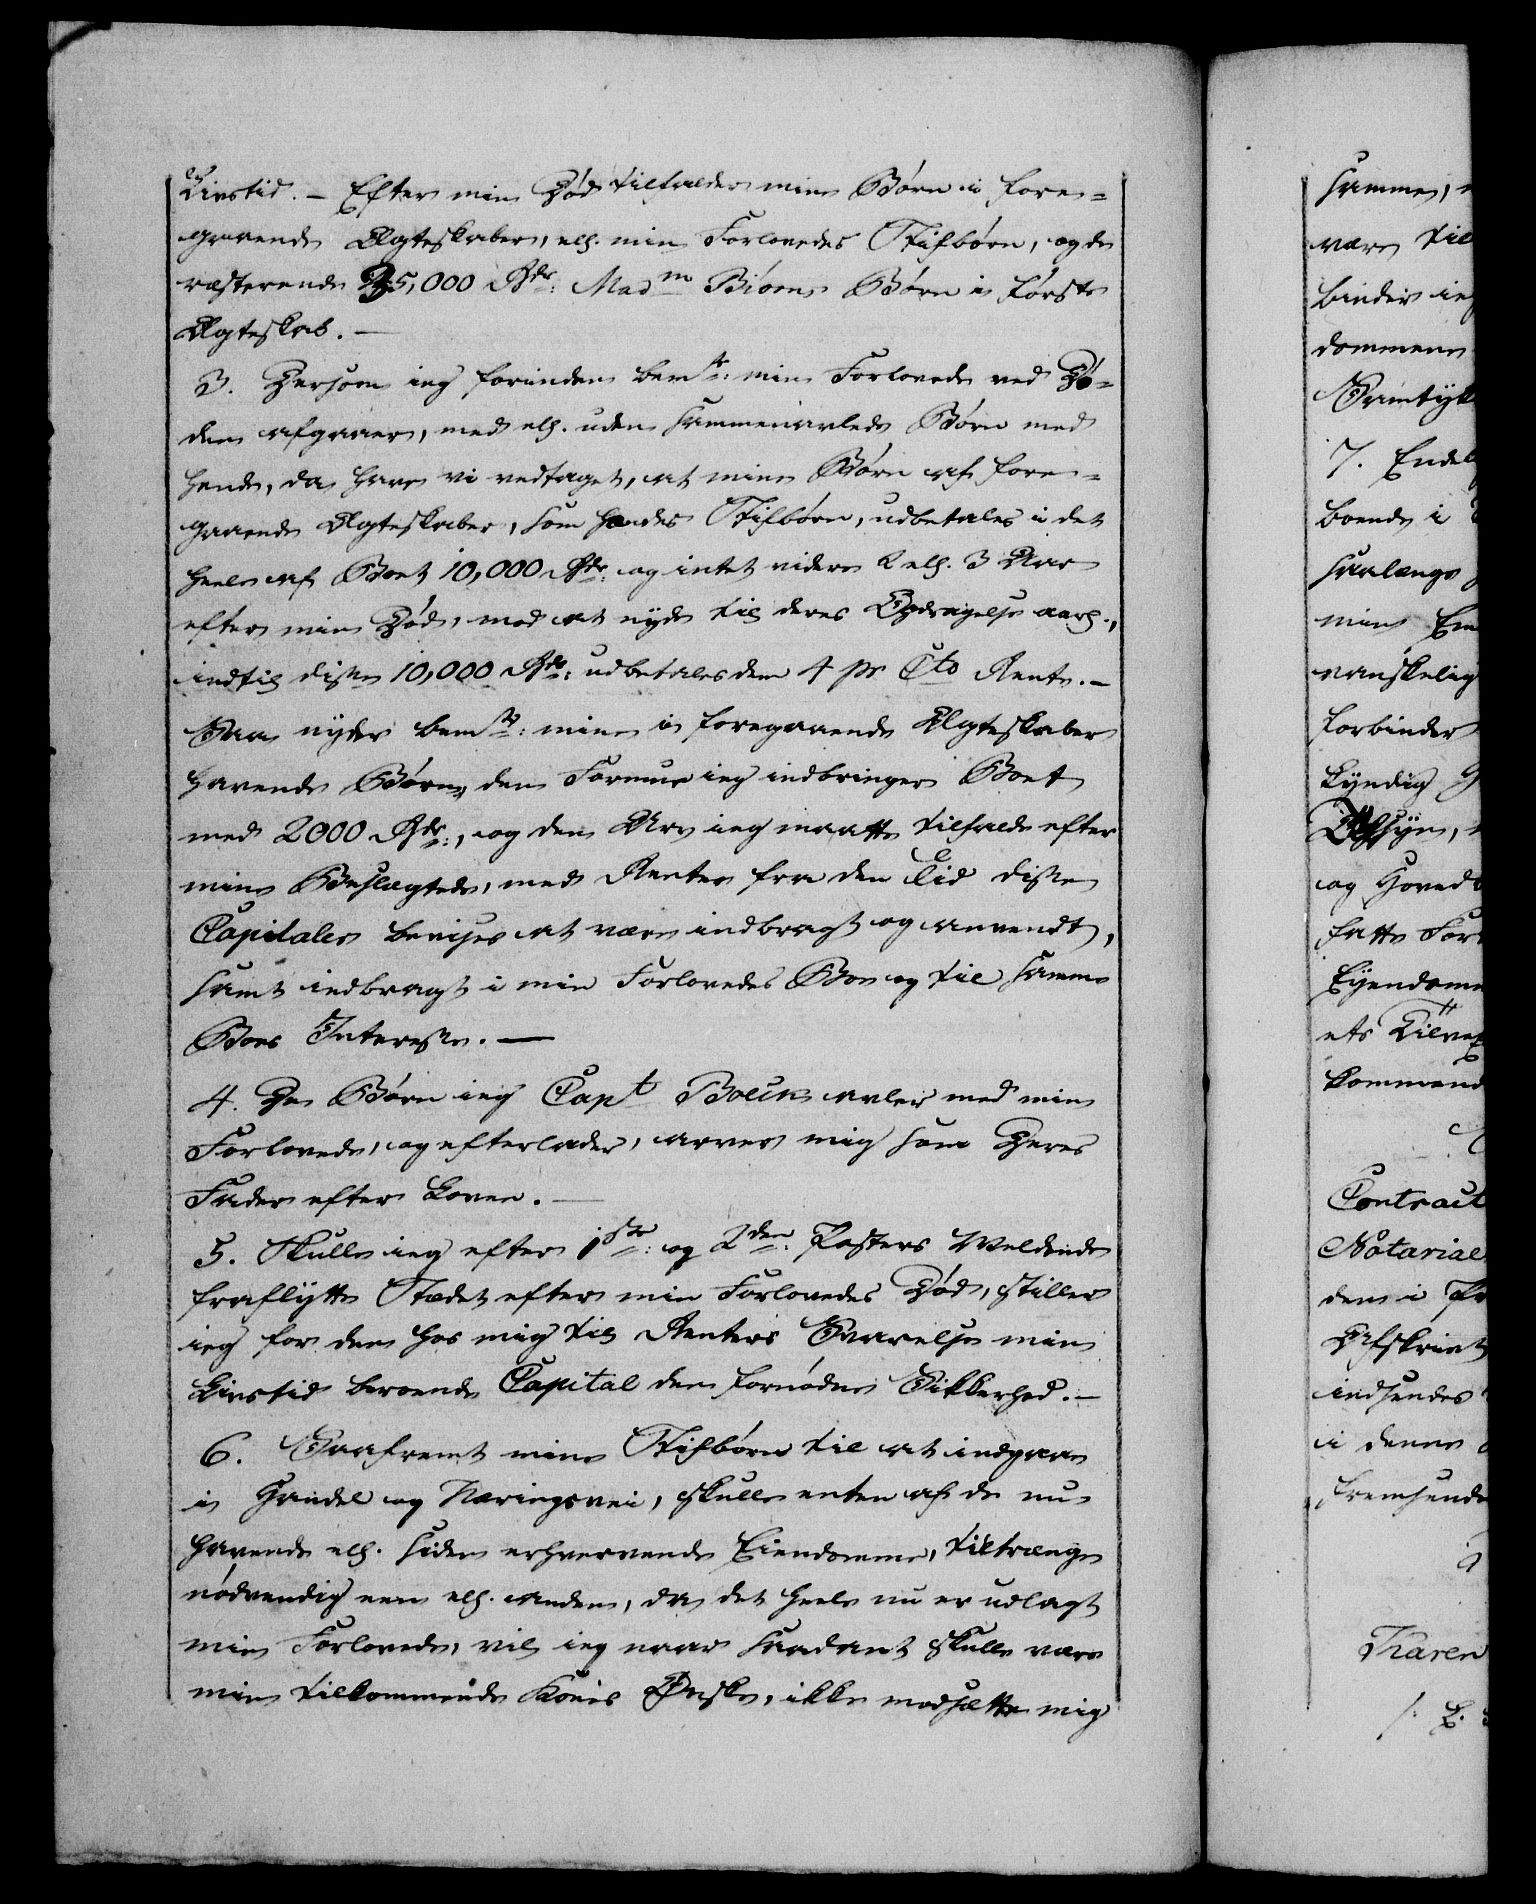 Livstid. – Efter min Död tilfalder mine Börn i fore-
gaaende Ægteskaber, ell. min Forlovedes Stifbörn, og de
resterende 35,000 Rdr: Mad<sup>m</sup> Biörns Börn i förste
Ægteskab. –
3. Dersom ieg forinden bem<sup>te</sup>: min Forlovede ved Dö-
den afgaaer, med ell. uden sammenavlede Börn med
hende, da have vi vedtaget, at mine Börn af fore-
gaaende Ægteskaber, som hendes Stifbörn, udbetales i det
heele af Boet 10,000 Rdr: og intet videre 2 ell. 3 Aar
efter min Död, mod at nyde til deres Opdragelse aarl.,
indtil disse 10,000 Rdr: udbetales dem 4 pr Cto Rente. –
Saa nyder bem<sup>te</sup>: mine i foregaaende Ægteskaber
havende Börn, den Formue ieg indbringer Boet
med 2000 Rdr:, og den Arv ieg maatte tilfalde efter
mine Beslægtede, med Renter fra den Tid disse
Capitaler bevises at være indbragt og anvendt,
samt indbragt i min Forlovedes Boe og til samme
Boes Interesse. —
4. De Börn ieg Cap<sup>t</sup> Boeck avler med min
Forlovede, og efterlader, arver mig som Deres
Fader efter Loven. —
5. Skulle ieg efter 1<sup>ste</sup>: og 2<sup>den</sup>: Posters Meldende
fraflytte Stædet efter min Forlovedes Död, stiller
ieg for den hos mig til Renters Svarelse min
Livstid beroende Capital den fornödne Sikkerhed. –
6. Saafremt mine Stifbörn til at indgaae
i Handel og Næringsvei, skulle enten af de nu
havende ell. siden erhvervende Eiendomme, tiltrænge
nödvendig een ell. anden, da det heele nu er udlagt
min Forlovede, vil ieg naar saadant skulle være
min tilkommende Konis Önske, ikke modsætte mig
samme,
være til
binder ieg
dommene
Samtyk
7. Endel
boende i
saalænge
mine
vanskelig
forbinder
kyndig
Opsyn,
og Hoved
fatte For
Eyendomm
ets Tilvæ
kommend
Contract
Notarial
den i Pr
Afskrivt
indsendes
i denne
fremsende
Karen